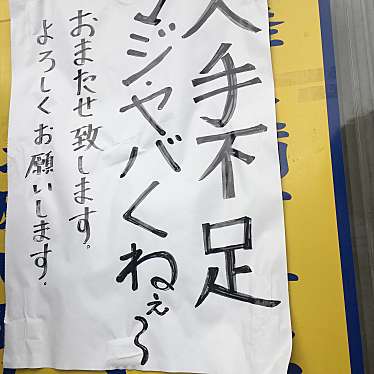 人手不足
マジ、ヤバくねぇ〜
おまたせ致します。
よろしくお願いします。